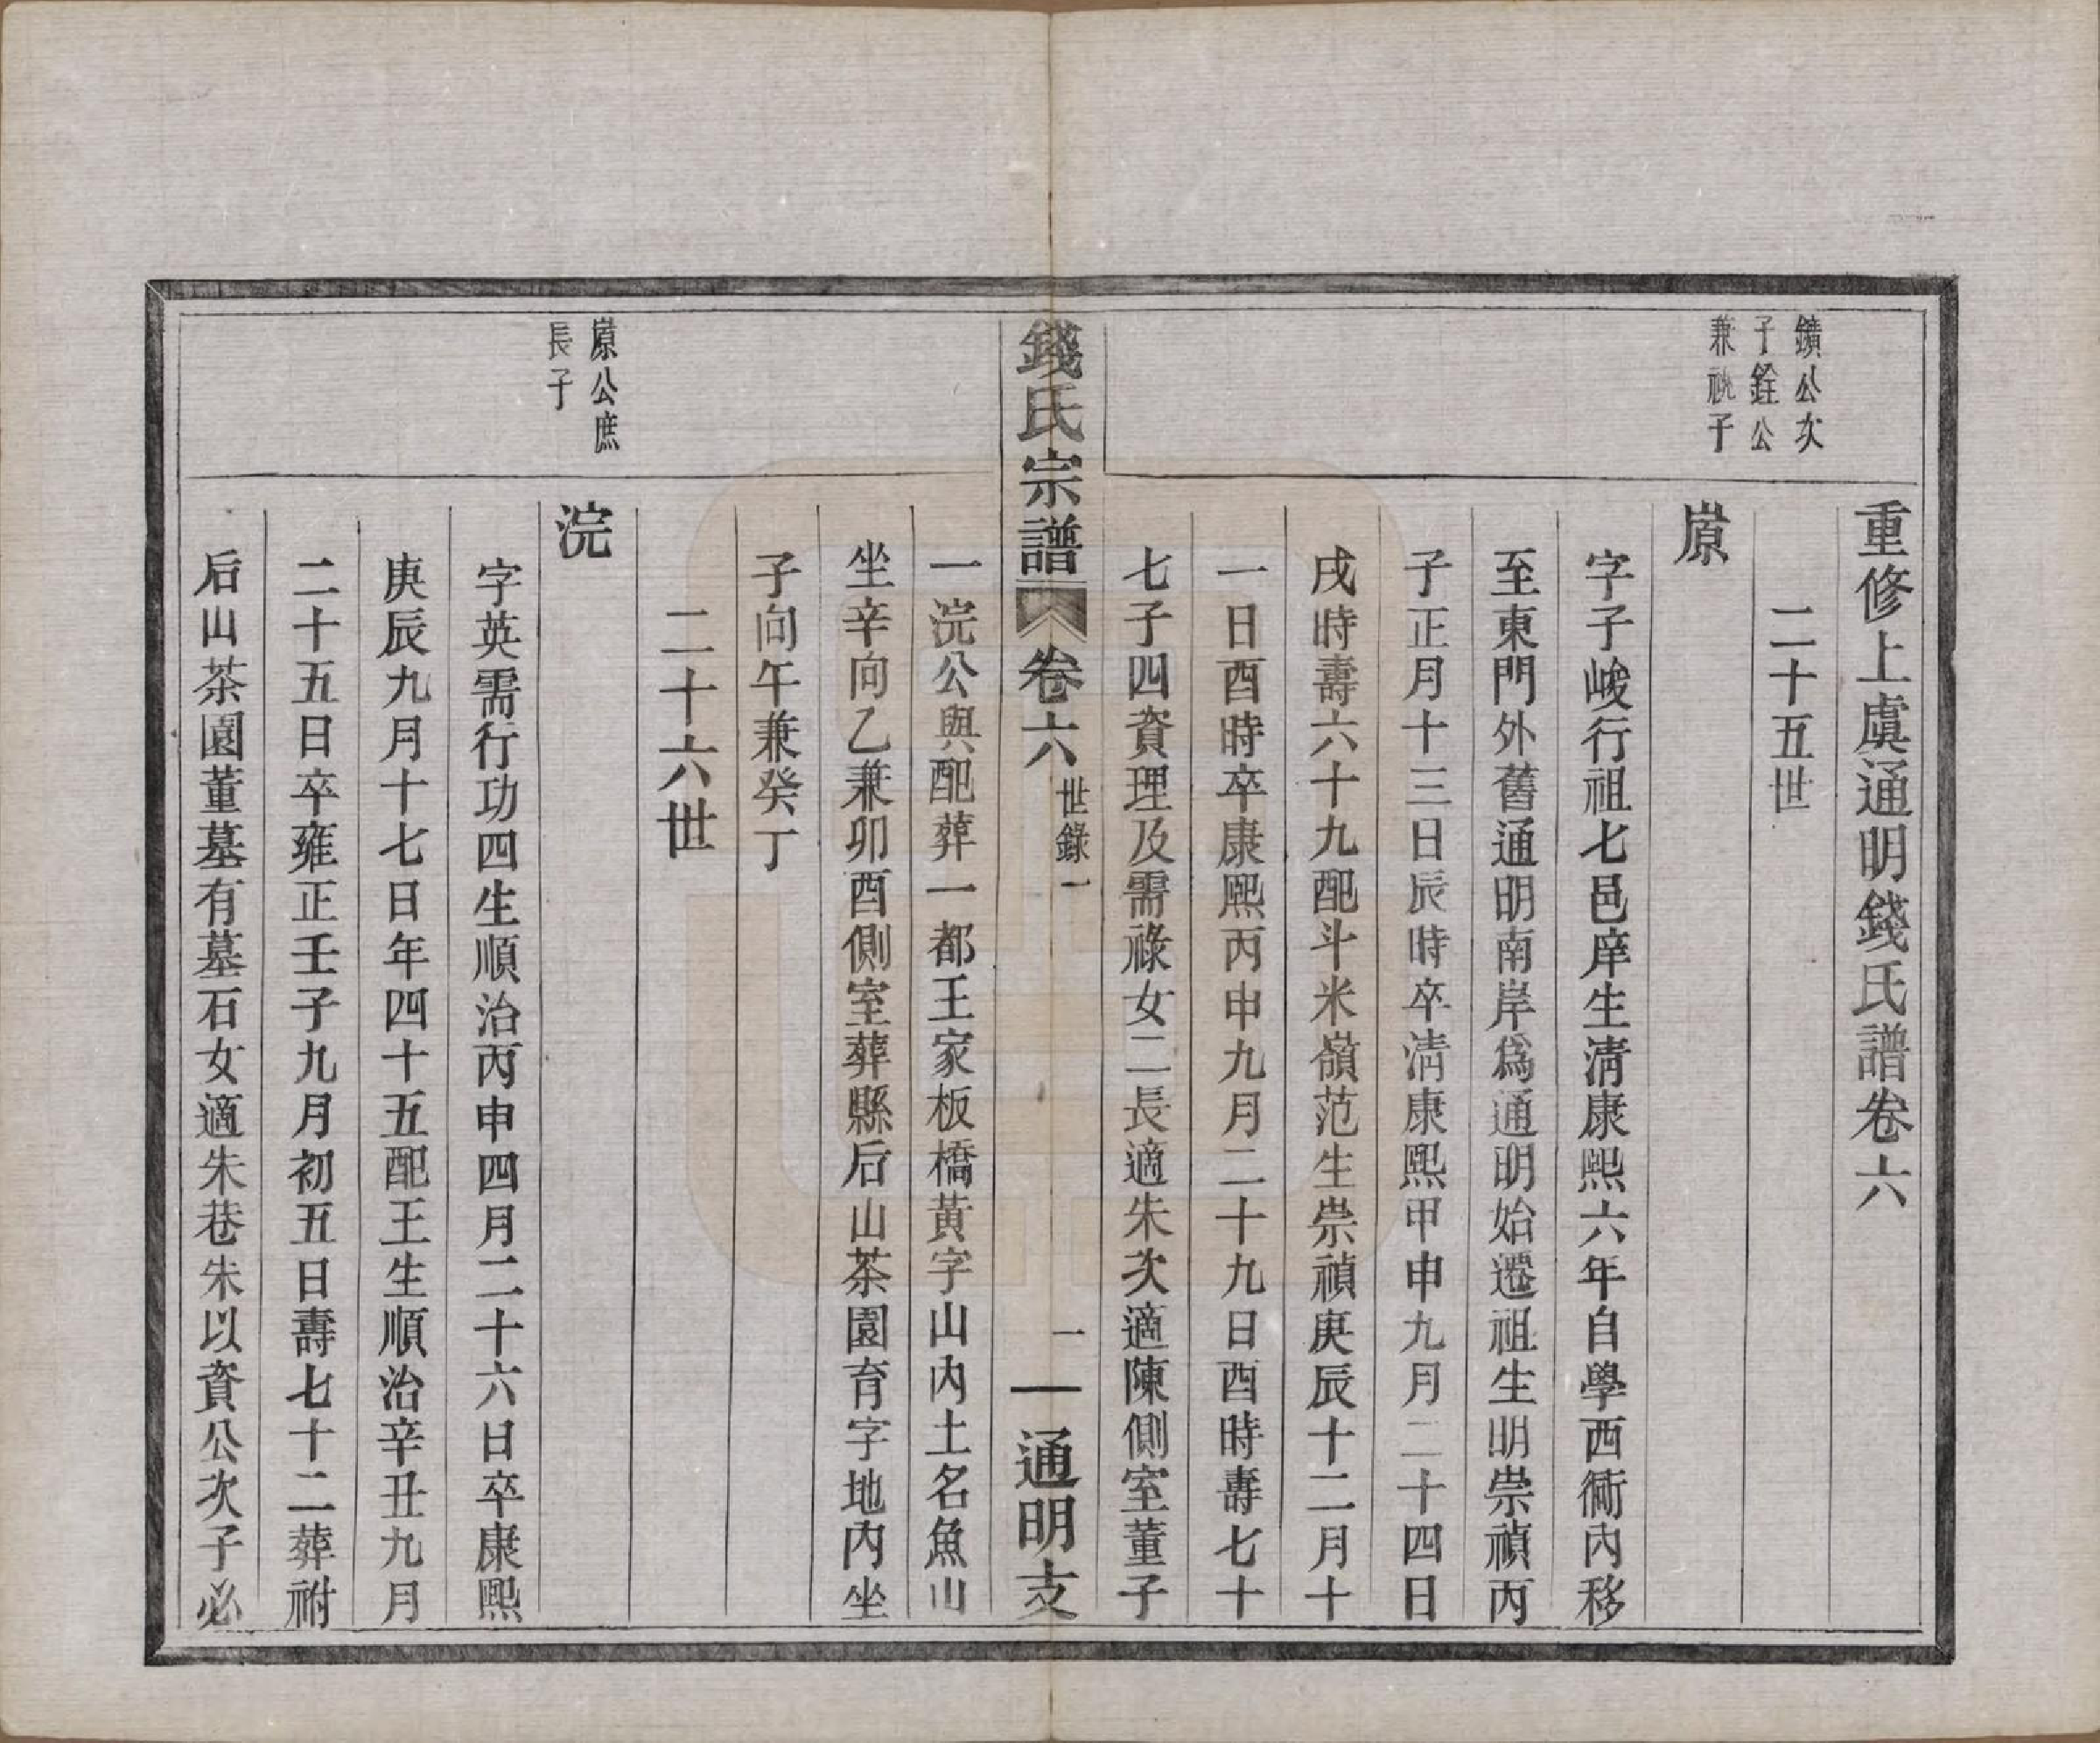 重修上虞通明錢氏譜卷六
二十五世
鑛公次
子銓公
兼祧子
㟲
字子峻行祖七邑庠生清康熙六年自學西衕內移
至東門外舊通明南岸爲通明始遷祖生明崇禎丙
子正月十三日辰時卒清康熙甲申九月二十四日
戌時壽六十九配斗米嶺范生崇禎庚辰十二月十
一日酉時卒康熙丙申九月二十九日酉時壽七十
七子四資理及需祿女二長適朱次適陳側室董子
錢氏宗譜
卷六
世錄一
一
通明支
一浣公與配葬一都王家板橋黃字山內土名魚山
坐辛向乙兼卯酉側室葬縣后山茶園育字地內坐
子向午兼癸丁
二十六世
㟲公庶
長子
浣
字英需行功四生順治丙申四月二十六日卒康熙
庚辰九月十七日年四十五配王生順治辛丑九月
二十五日卒雍正壬子九月初五日壽七十二葬祔
后山茶園董墓有墓石女適朱巷朱以資公次子必